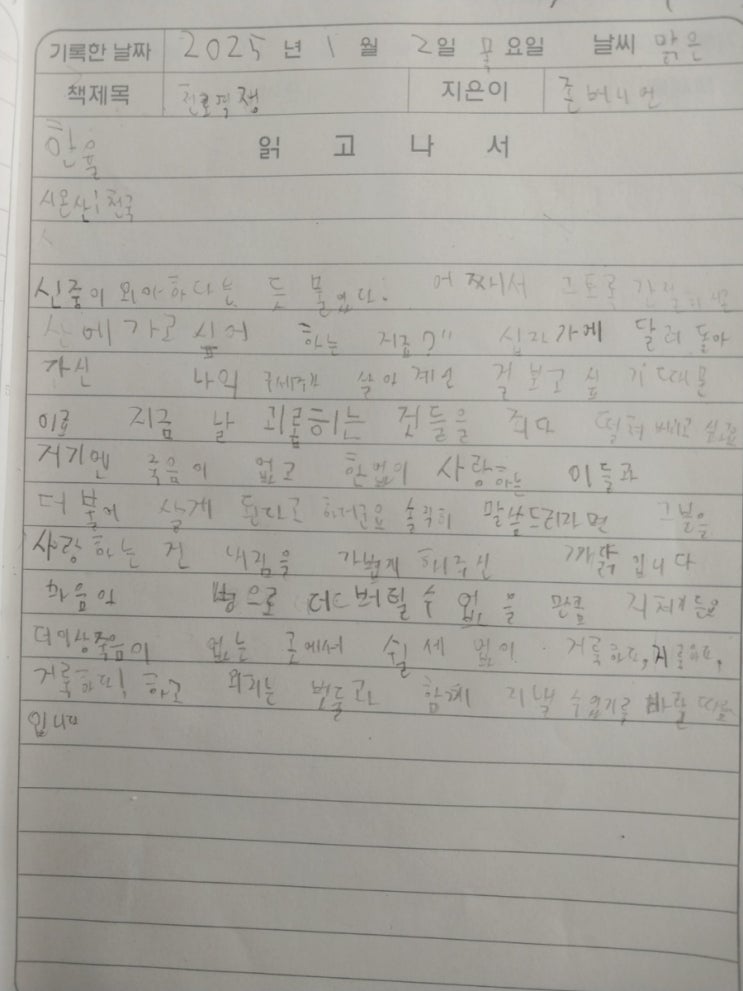 기록한 날짜 2025 년 1 월 2일 목 요일 날씨 맑은
책제목 천로역정 지은이 존 버니언
한율 읽 고 나 서
시온산; 천국
신중이 의아하다는 듯 물었다. 어째서 그토록 간절히
산에 가고 싶어 하는 지금?" 십자가에 달려 돌아
가신 나의 구세주가 살아 계신 걸 보고 싶 기 때문
이죠 지금 날 괴롭히는 것들을 죄다 떨쳐 버리고 싶고요
거기엔 죽음이 없고 한없이 사랑하는 이들과
더 불어 살게 된다고 하더군요 솔직히 말씀드리자면 그분을
사랑하는 건 내짐을 가볍게 해주신 까닭 입니다
마음의 병으로 더는 버틸 수 없을 만큼 지쳐거든요
더이상죽음이 없는 곳에서 쉴 세 없이 거룩하다, 거룩하다,
거룩하다! 하고 외치는 벗들과 함께 지낼 수있기를 바랄 따름
입니다